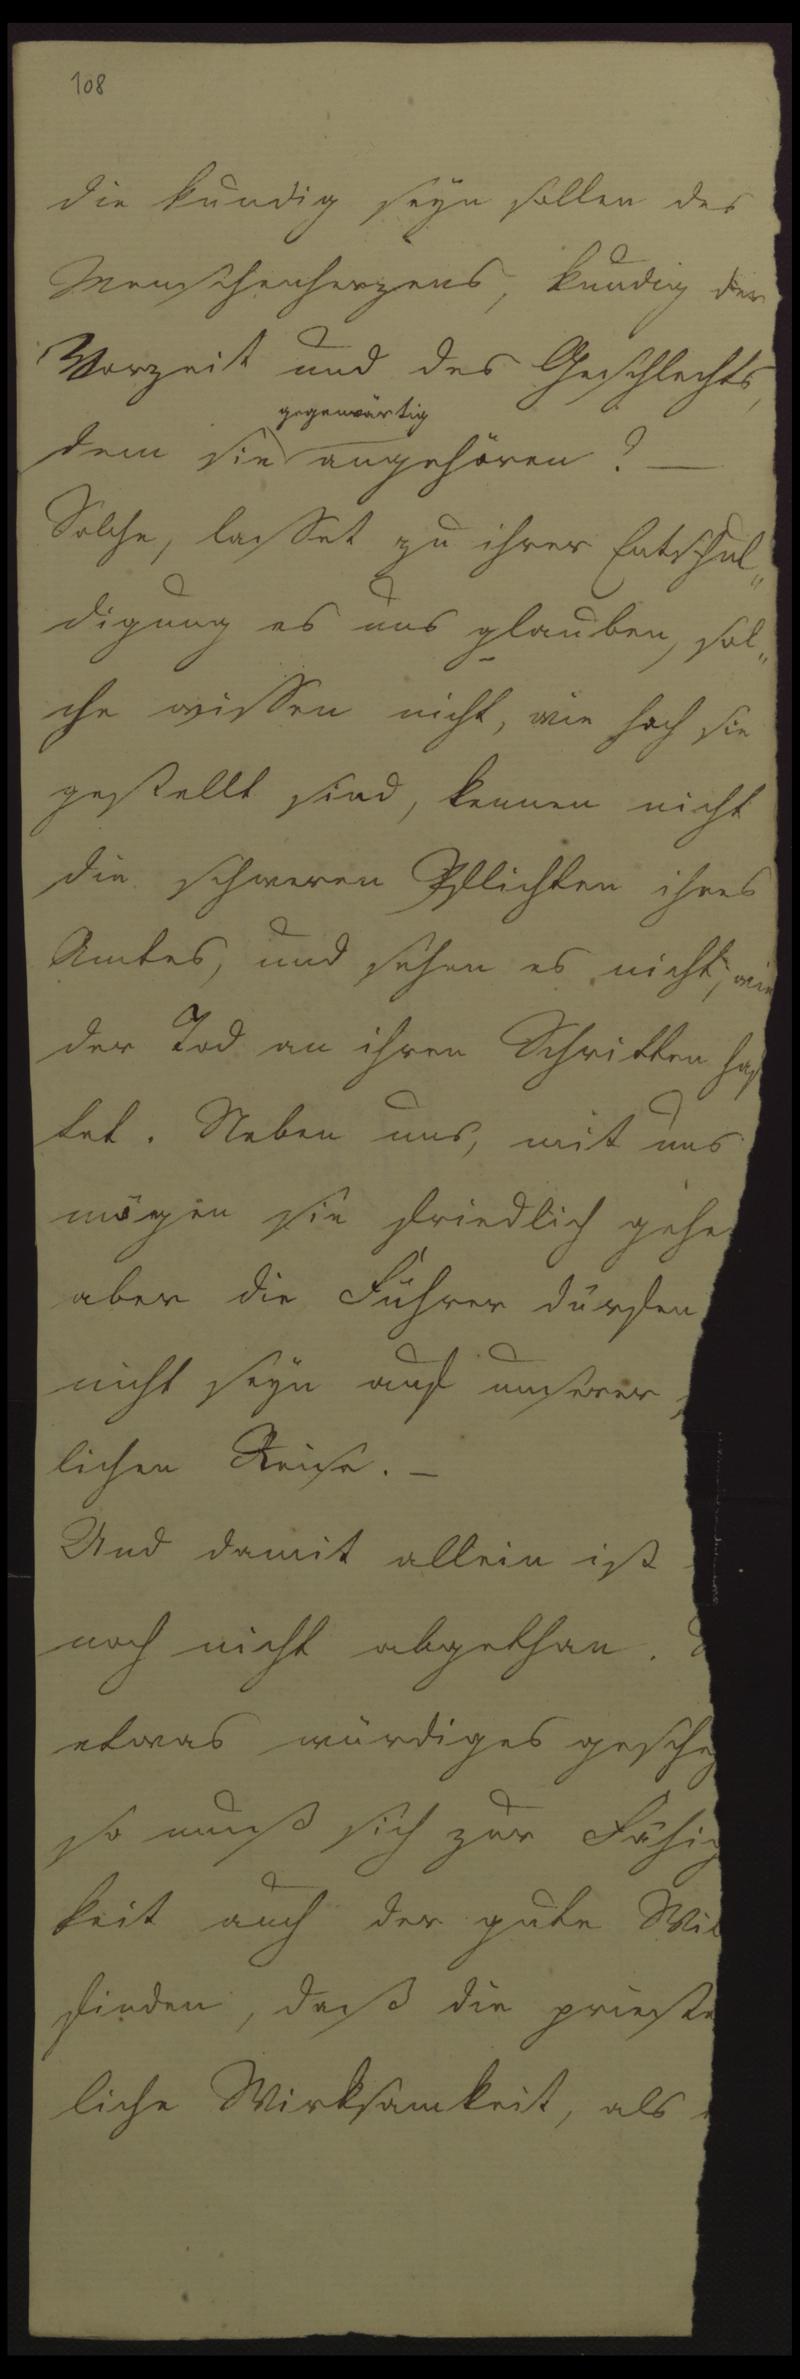 108
die kundig seyn sollen des
Menschenherzens, kundig der
Vorzeit und des Geschlechts,
gegenwärtig
dem sie angehören? —
Solche, lasset zu ihrer Entschul„
digung es uns glauben, sol„
che wissen nicht, wie hoch sie
gestellt sind, kennen nicht
die schweren Pflichten ihres
Amtes, und sehen es nicht, wie
der Tod an ihren Schritten haf
tet. Neben uns, mit uns
mögen sie friedlich gehe
aber die Führer dürfen
nicht seyn auf unserer
lichen Reise. —
Und damit allein ist
noch nicht abgethan.
etwas würdiges gescheh
so muß sich zur Fähig
keit auch der gute Wil
finden, daß die prieste
liche Wirksamkeit, als